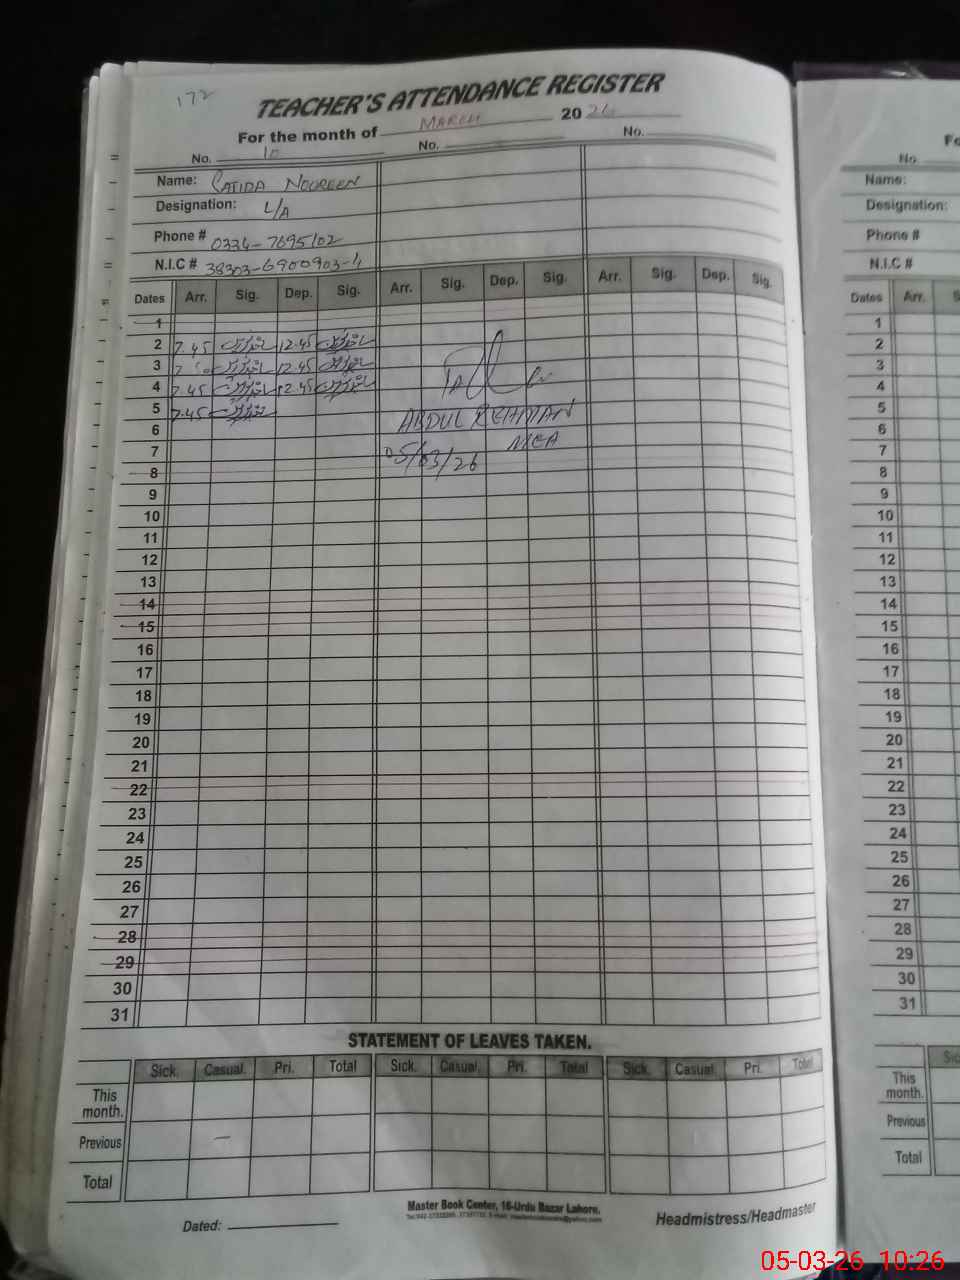 172
TEACHER'S ATTENDANCE REGISTER
For the month of MARCH 2026
No. 10 No. No.
Name: NOUREEN
Designation: L/A
Phone # 0334-7695102
N.I.C # 38303-6900903-4
Dates Arr. Sig. Dep. Sig. Arr. Sig. Dep. Sig. Arr. Sig. Dep. Sig.
1
2 7.45 12.45
3 12.45
4 7.45 12.45
5 7.45
6
7
ABDUL REHMAN
MEA
05/03/26
8
9
10
11
12
13
14
15
16
17
18
19
20
21
22
23
24
25
26
27
28
29
30
31
STATEMENT OF LEAVES TAKEN.
Sick. Casual. Pri. Total Sick. Casual. Pri. Total Sick. Casual. Pri. Total
This month.
Previous –
Total
Master Book Center, 16-Urdu Bazar Lahore.
Dated:
Headmistress/Headmaster
Fo
No.
Name:
Designation:
Phone #
N.I.C #
Dates Arr. S
1
2
3
4
5
6
7
8
9
10
11
12
13
14
15
16
17
18
19
20
21
22
23
24
25
26
27
28
29
30
31
Sic
This month.
Previous
Total
05-03-26 10:26